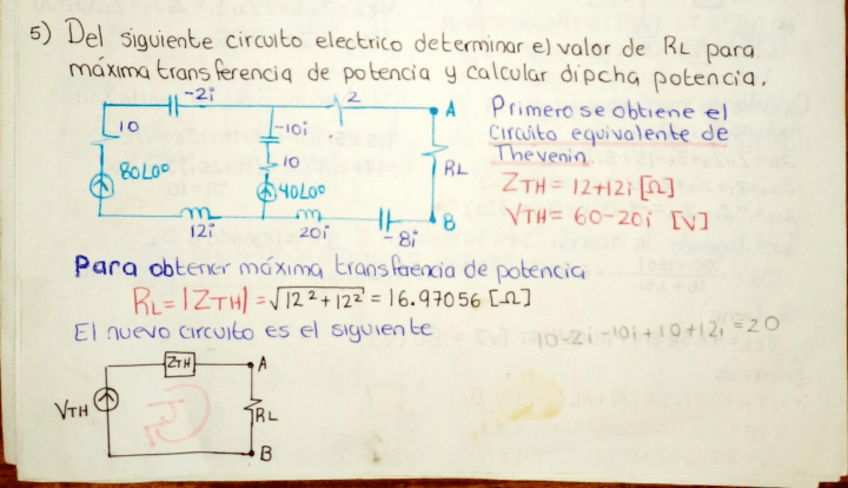 5) Del siguiente circuito electrico determinar el valor de RL para
máxima transferencia de potencia y calcular dipcha potencia.
-2i
2
A
10
-10i
10
80∠0°
40∠0°
RL
12i
20i
-8i
B
Primero se obtiene el
circuito equivalente de
Thevenin
ZTH = 12+12i [Ω]
VTH = 60-20i [V]
Para obtener máxima transfaencia de potencia
RL = |ZTH| = √12²+12² = 16.97056 [Ω]
El nuevo circuito es el siguiente
10-2i-10i+10+12i = 20
ZTH
A
VTH
RL
B